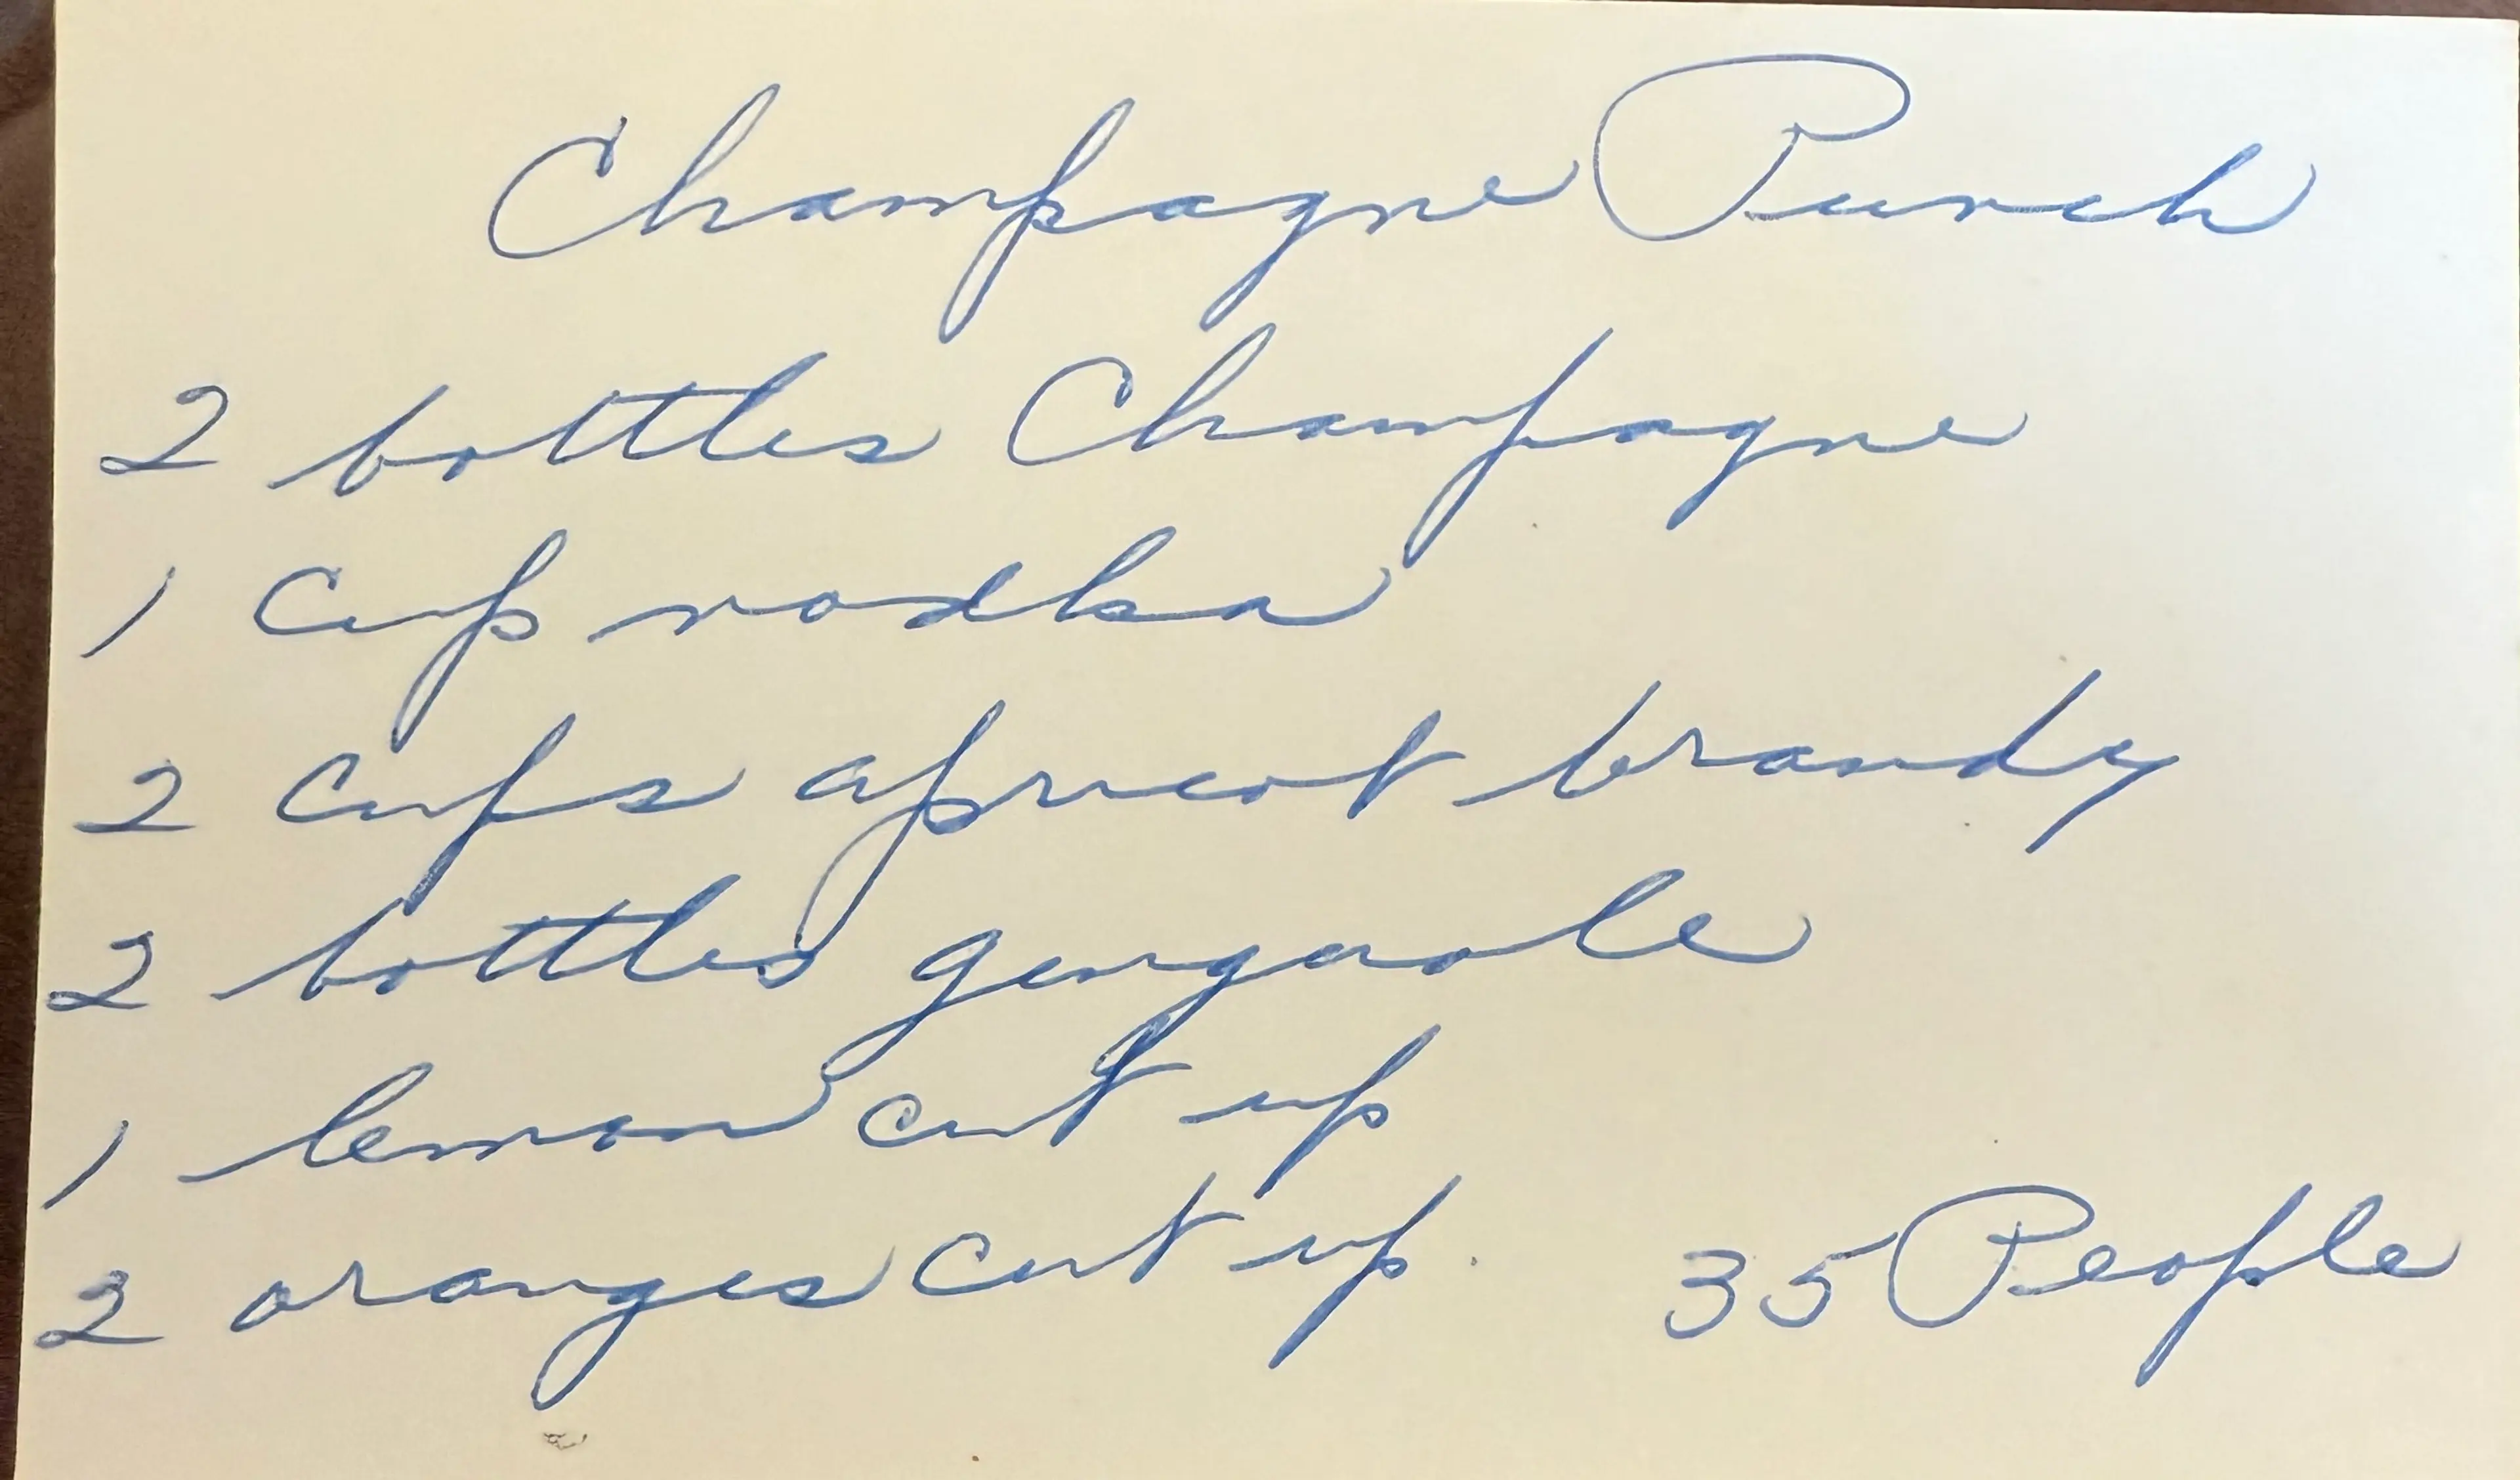 Champagne Punch
2 bottles Champagne
1 Cup vodka
2 Cups apricot brandy
2 bottles gingerale
1 lemon cut up
2 oranges cut up. 35 People